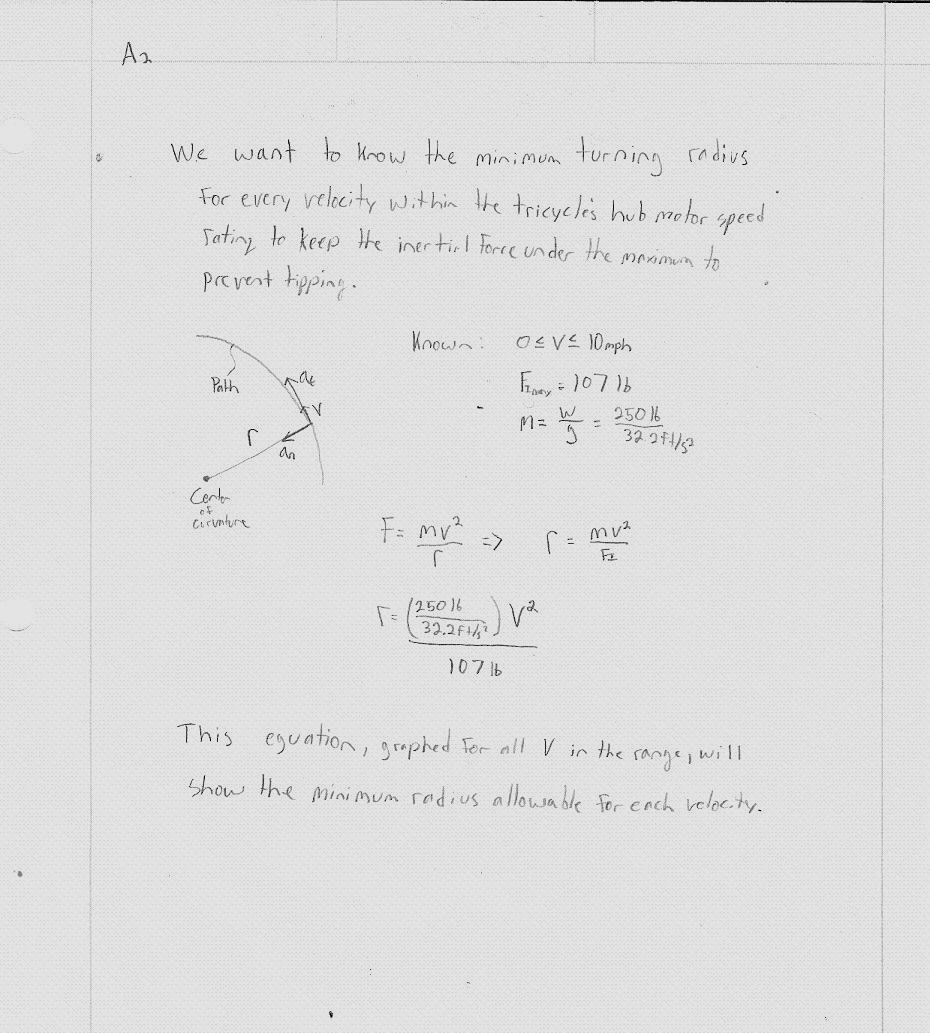 A2
We want to know the minimum turning radius
for every velocity within the tricycle's hub motor speed
rating to keep the inertial force under the maximum to
prevent tipping.
Known: 0 ≤ V ≤ 10mph
Path
at
F_Imax = 107 lb
V
m = W/g = 250 lb / 32.2 ft/s²
r
an
Center
of
curvature
F = mv²/r => r = mv²/F_I
r = (250 lb / 32.2 ft/s²) V² / 107 lb
This equation, graphed for all V in the range, will
show the minimum radius allowable for each velocity.